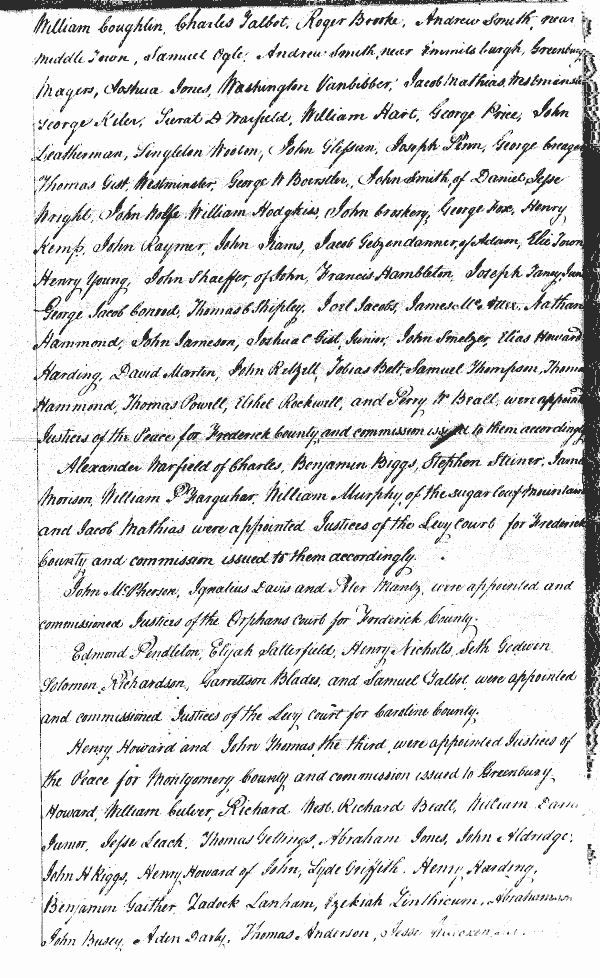 William Coughlin, Charles Talbot, Roger Brooke, Andrew Smith, near
middle Town, Samuel Ogle, Andrew Smith, near Emmitsburgh, Greenbury
Magers, Joshua Jones, Washington Vanbibber, Jacob Mathias, Westminster
George Kiler, Surat D Warfield, William Hart, George Price, John
Leatherman, Singleton Wooton, John Glessan, Joseph Penn, George Creager
Thomas Gist, Westminster, George W Boerstler, John Smith, of Daniel, Jesse
Wright, John Wolfe William Hodgkiss, John Croskery, George Fox, Henry
Kemp, John Raymer, John Iiams, Jacob Getzendanner, of Adam, Elie
Henry Young, John Shaeffer, of John, Francis Hambleton, Joseph Taney, Jun
George Jacob Conrod, Thomas C Shipley, Joel Jacobs, James Nathan
Hammond, John Jameson, Joshua C Gist, Junior, John Smelzer, Elias Howard
Harding, David Martin, John Retzell, Tobias Belt, Samuel Thompson, Thomas
Hammond, Thomas Powell, Ethel Rockwell, and Perry W Beall, were appoint
Justices of the Peace for Frederick County, and commission issued to them accordingly
Alexander Warfield of Charles, Benjamin Biggs, Stephen Steiner, Jame
Morison, William P Farquhar, William Murphy, of the sugar loaf mountain
and Jacob Mathias were appointed Justices of the Levy Court for Frederick
County and commission issued to them accordingly.
John McPherson, Ignatius Davis and Peter Mantz, were appointed and
commissioned Justices of the Orphans court for Frederick County.
Edmond Pendleton, Elijah Satterfield, Henry Nicholls, Seth Godwin
Solomon Richardson, Garrettson Blades, and Samuel Talbot, were appointed
and commissioned Justices of the Levy court for Caroline County.
Henry Howard and John Thomas, the third, were appointed Justices of
the Peace for Montgomery County and commission issued to Greenbury
Howard, William Culver, Richard West, Richard Beall, William
Junior, Jesse Leach, Thomas Gettings, Abraham Jones, John Aldridge,
John H Riggs, Henry Howard of John, Lyde Griffith, Henry Harding,
Benjamin Gaither, Zadock Lanham, Ezekiah Linthicum, Abraham
John Busey, Aden Darby, Thomas Anderson, Jesse